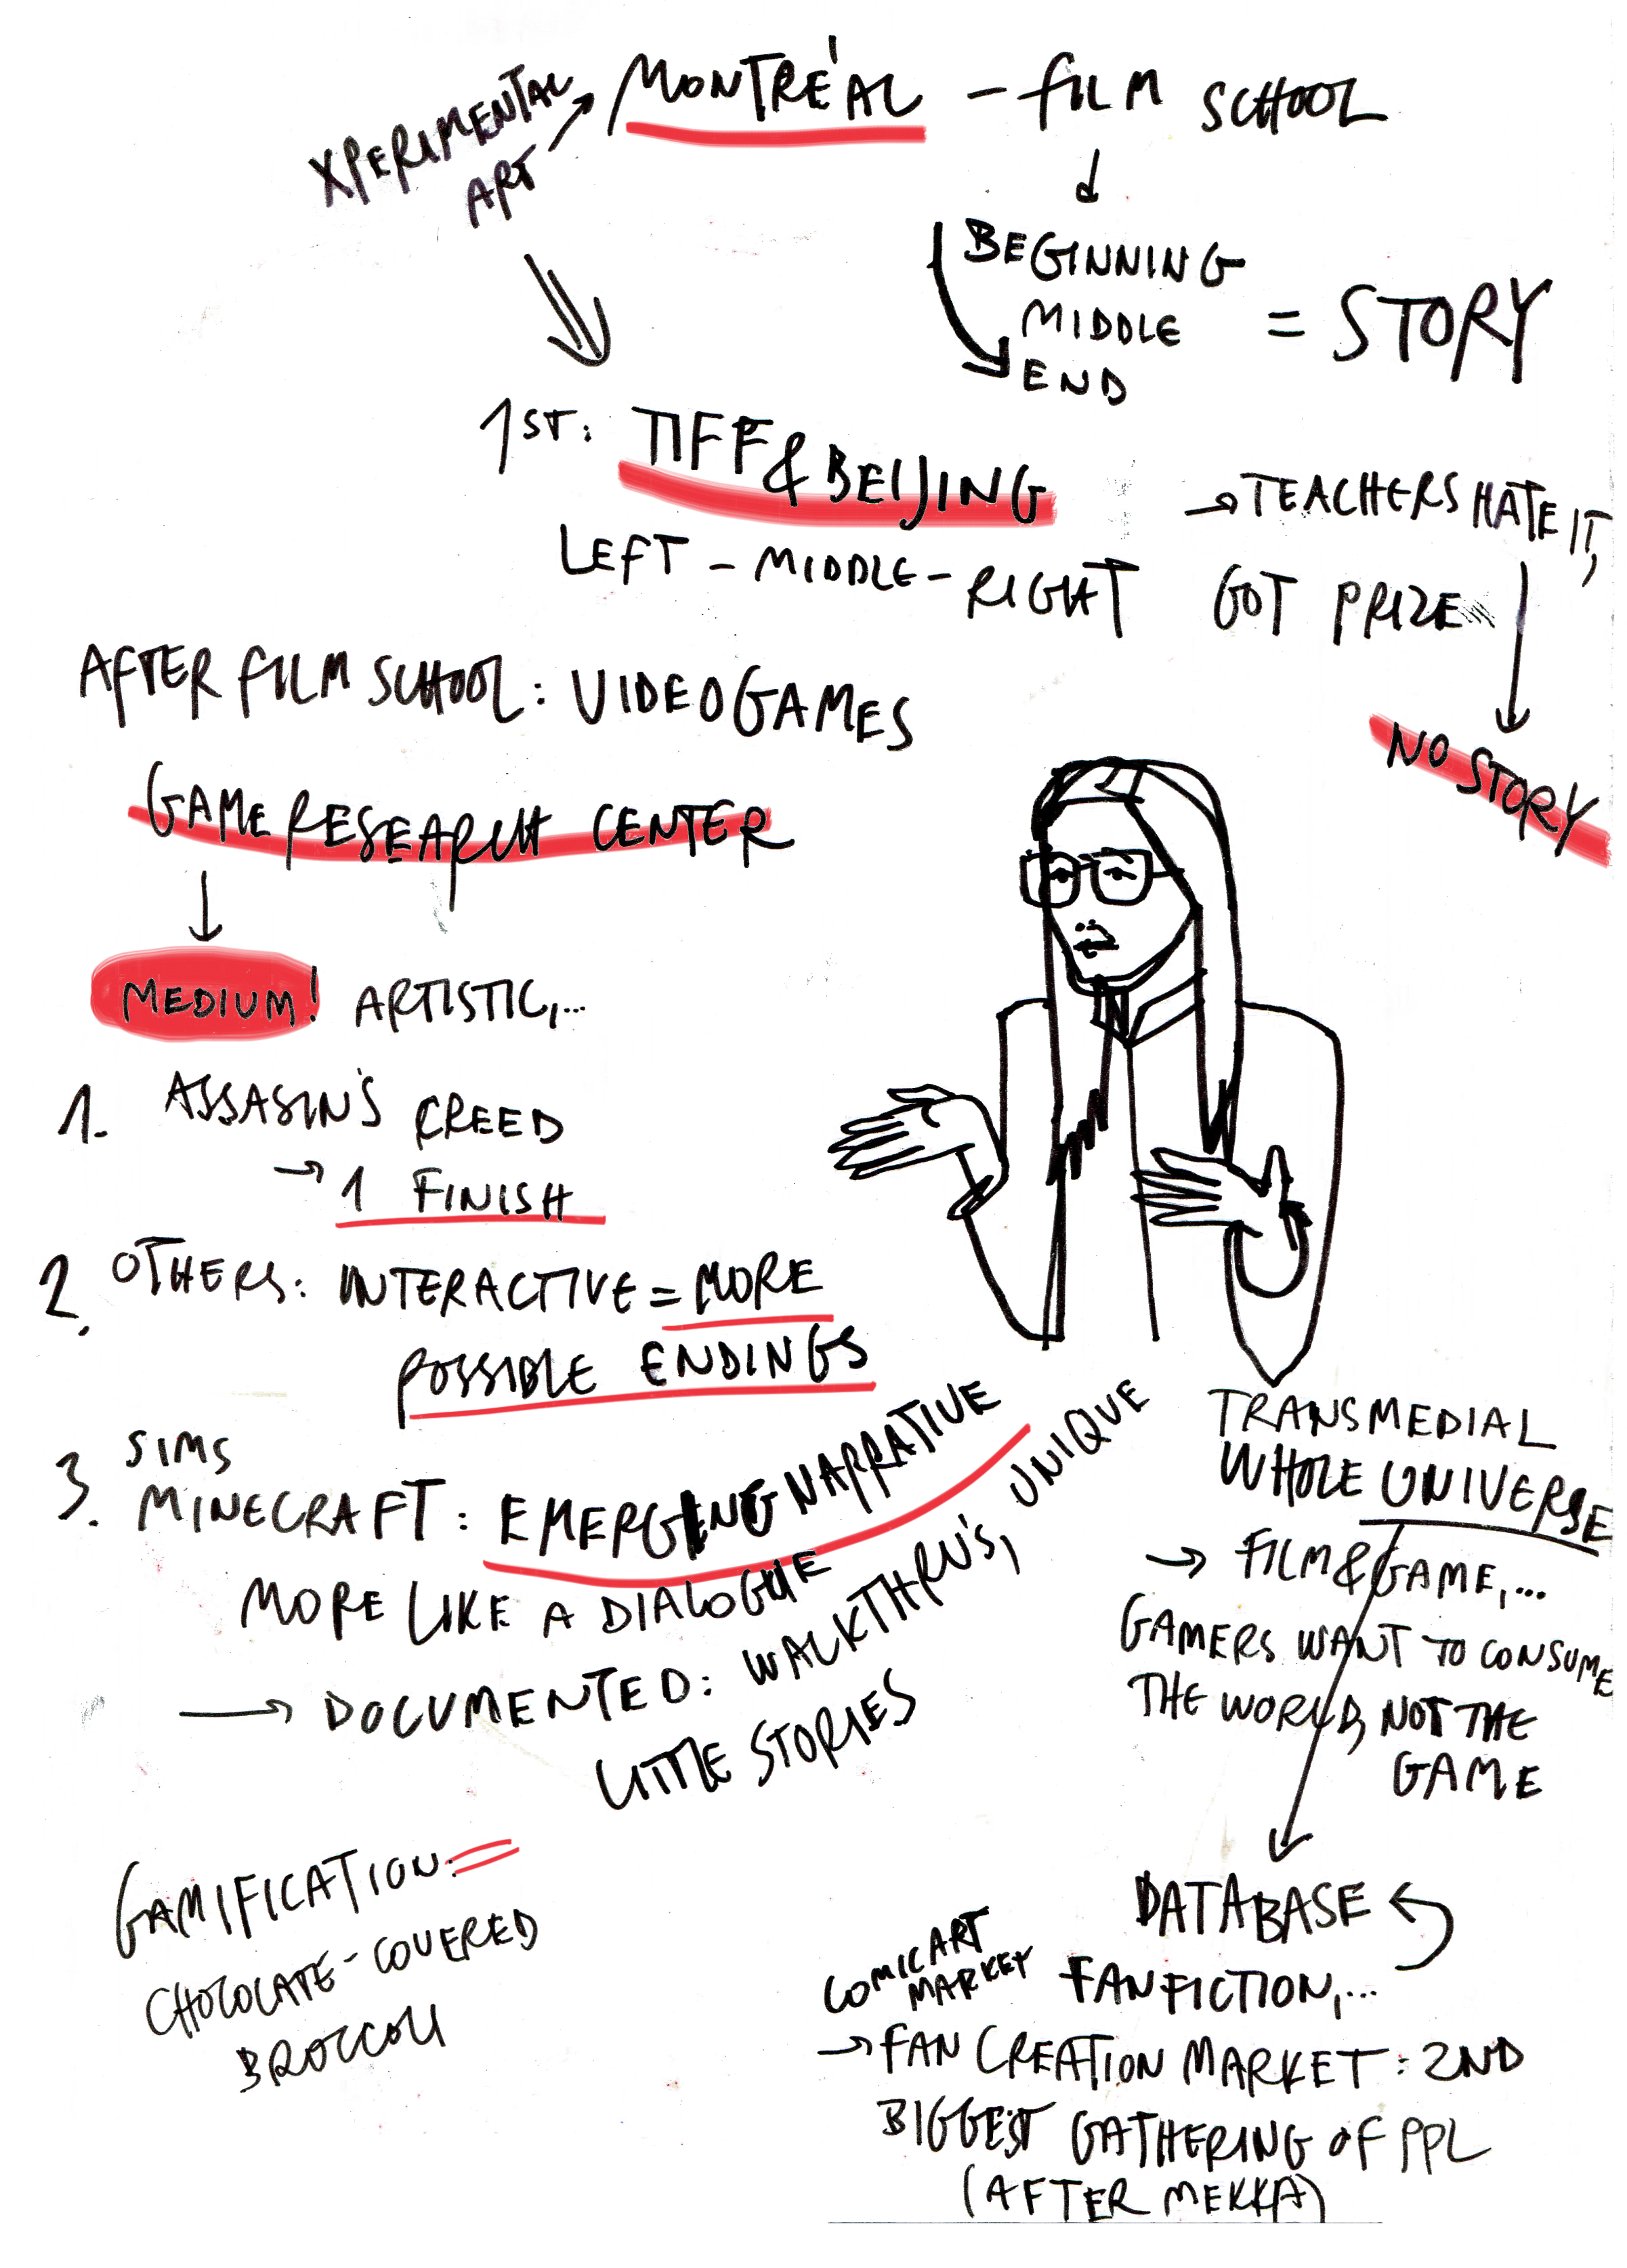 XPERIMENTAL
ART
MONTRÉAL – FILM SCHOOL
BEGINNING
MIDDLE
END
= STORY
1ST: TIFF & BEIJING
LEFT – MIDDLE – RIGHT
→ TEACHERS HATE IT,
GOT PRIZE
NO STORY
AFTER FILM SCHOOL: VIDEOGAMES
GAME RESEARCH CENTER
MEDIUM! ARTISTIC,...
1. ASSASIN'S CREED
→ 1 FINISH
2. OTHERS: INTERACTIVE = MORE
POSSIBLE ENDINGS
3. SIMS
MINECRAFT: EMERGING NARRATIVE
MORE LIKE A DIALOGUE
→ DOCUMENTED: WALKTHRU'S, UNIQUE
LITTLE STORIES
GAMIFICATION =
CHOCOLATE-COVERED
BROCCOLI
TRANSMEDIAL
WHOLE UNIVERSE
→ FILM & GAME,...
GAMERS WANT TO CONSUME
THE WORLD, NOT THE
GAME
DATABASE
COMIC ART
MARKET
FANFICTION,...
→ FAN CREATION MARKET: 2ND
BIGGEST GATHERING OF PPL
(AFTER MEKKA)